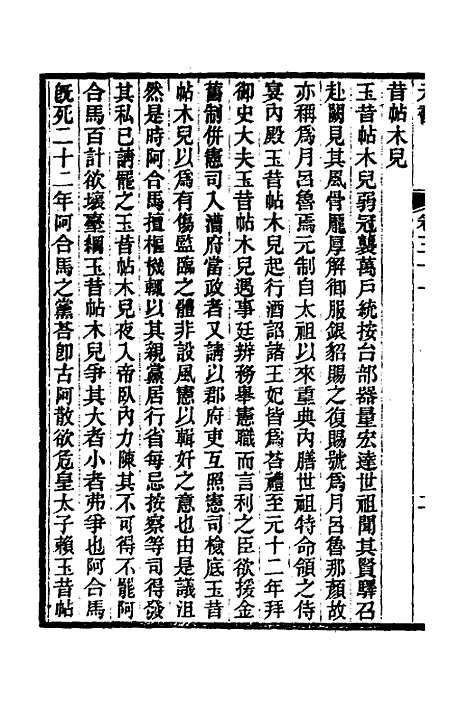 昔帖木兒
玉昔帖木兒弱冠襲萬戶統按台部器量宏達世祖聞其賢驛召
赴闕見其風骨龎厚解御服銀貂賜之復賜號爲月呂魯那顏故
亦稱爲月呂魯焉元制自太祖以來重典內膳世祖特命領之侍
宴內殿玉昔帖木兒起行酒詔諸王妃皆爲荅禮至元十二年拜
御史大夫玉昔帖木兒遇事廷辨務舉憲職而言利之臣欲援金
舊制併憲司入漕府當政者又請以郡府吏互照憲司檢底玉昔
帖木兒以爲有傷監臨之體非設風憲以輯奸之意也由是議沮
然是時阿合馬擅樞機輒以其親黨居行省每忌按察等司得發
其私已請罷之玉昔帖木兒夜入帝臥內力陳其不可得不罷阿
合馬百計欲壞臺綱玉昔帖木兒爭其大者小者弗爭也阿合馬
旣死二十二年阿合馬之黨荅卽古阿散欲危皇太子賴玉昔帖